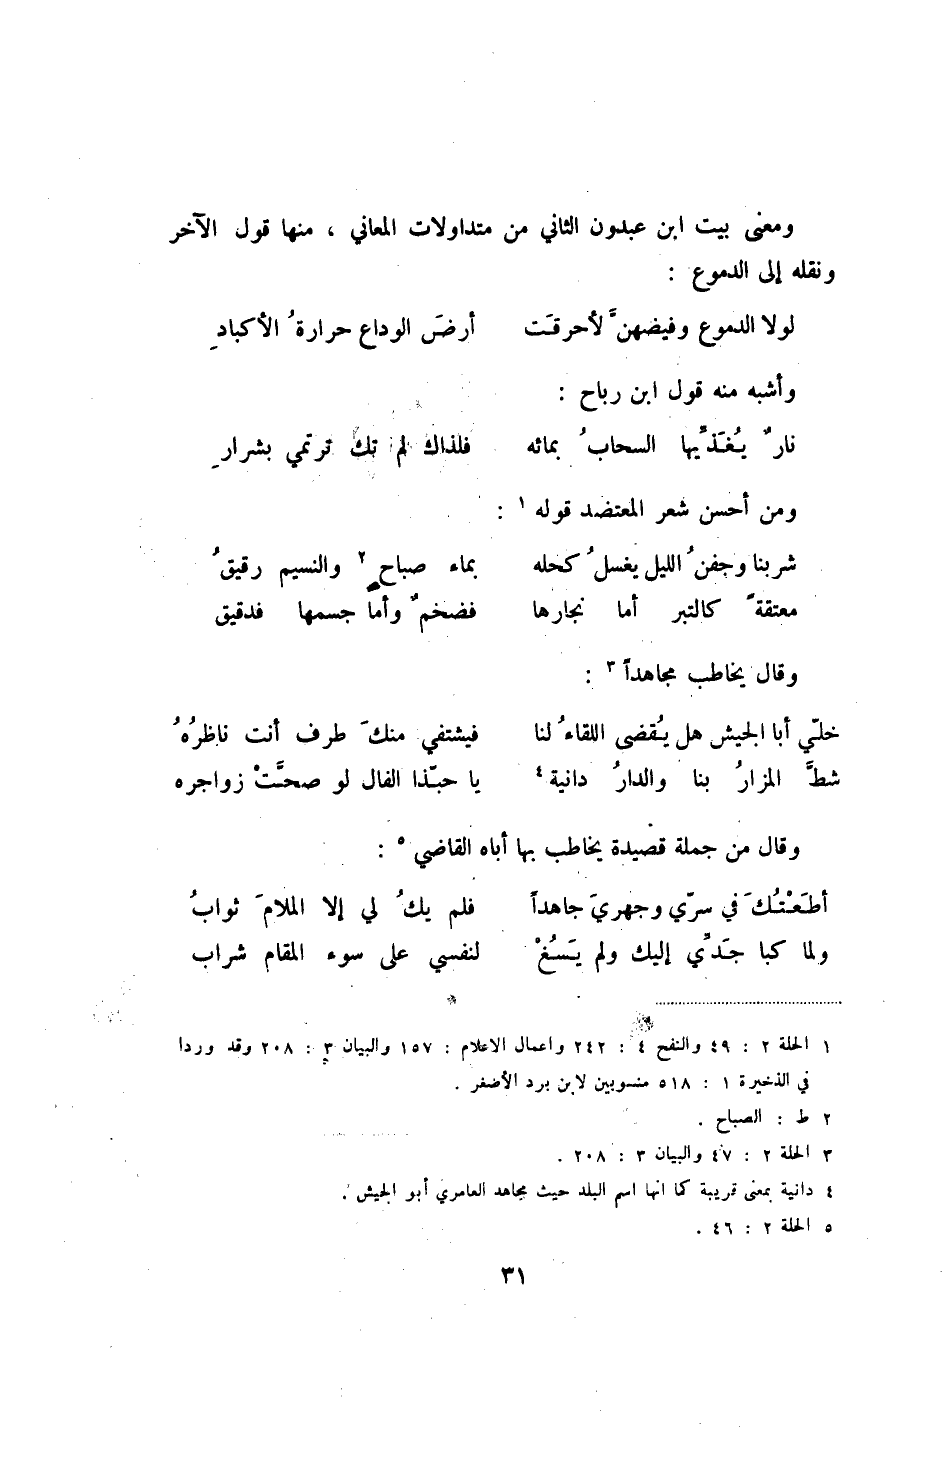 ومعنى بيت ابن عبدون الثاني من متداولات المعاني ، منها قول الآخر
ونقله إلى الدموع :
لولا الدموع وفيضهنَّ لأحرقَت أرضَ الوداع حرارةُ الأكبادِ
وأشبه منه قول ابن رباح :
نارٌ يُغَذِّيها السحابُ بمائه فلذاك لم تكُ ترتمي بشرارِ
ومن أحسن شعر المعتضد قوله ١ :
شربنا وجفنُ الليل يغسلُ كحله بماء صباحٍ ٢ والنسيم رقيقُ
معتقةً كالتبر أما نجارها فضخمٌ وأما جسمها فدقيق
وقال يخاطب مجاهداً ٣ :
خلّي أبا الجيش هل يُقضى اللقاءُ لنا فيشتفي منكَ طرف أنت ناظرُهُ
شطَّ المزارُ بنا والدارُ دانية ٤ يا حبّذا الفال لو صحَّتْ زواجره
وقال من جملة قصيدة يخاطب بها أباه القاضي ٥ :
أطَعْتُكَ في سرّي وجهريَ جاهداً فلم يكُ لي إلا الملامَ ثوابُ
ولما كبا جَدِّي إليك ولم يَسُغْ لنفسي على سوء المقام شراب
١ الحلة ٢ : ٤٩ والنفح ٤ : ٢٤٢ واعمال الاعلام : ١٥٧ والبيان ٣ : ٢٠٨ وقد وردا
في الذخيرة ١ : ٥١٨ منسوبين لابن برد الأصغر .
٢ ط : الصباح .
٣ الحلة ٢ : ٤٧ والبيان ٣ : ٢٠٨ .
٤ دانية بمعنى قريبة كما انها اسم البلد حيث مجاهد العامري أبو الجيش .
٥ الحلة ٢ : ٤٦ .
٣١